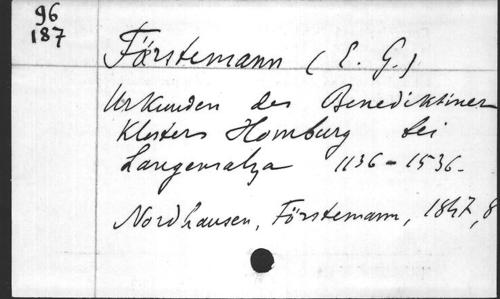 96
187
Förstemann (E. G.)
Urkunden des Benediktiner
Klosters Homburg bei
Langensalza 1136-1536.
Nordhausen, Förstemann, 1847, 8